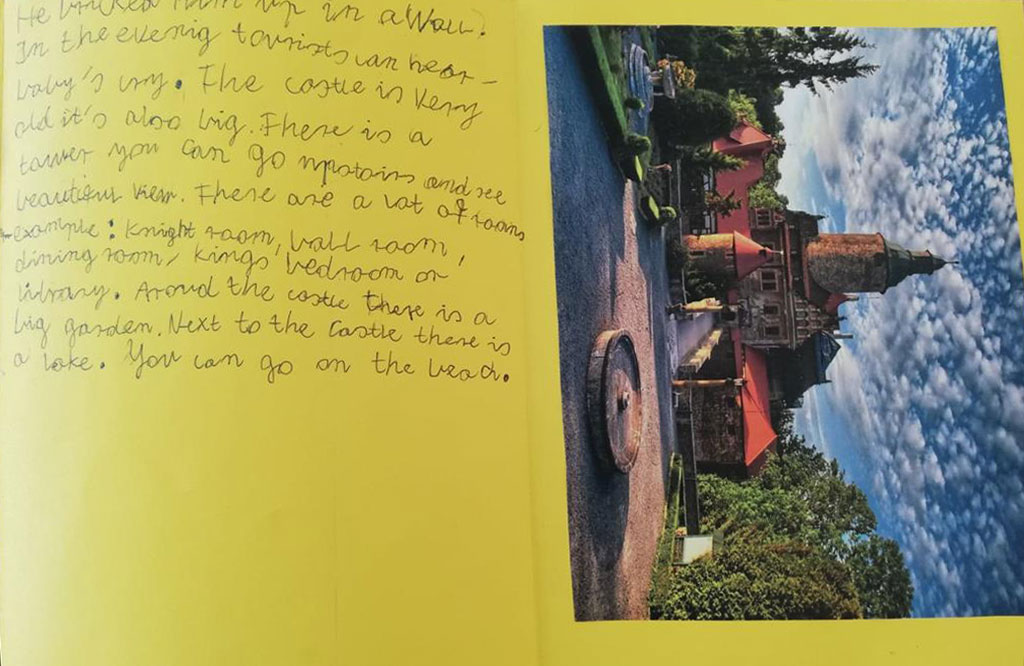 He bricked him up in a Wall.
In the evenig tourists can hear -
baby's cry. The castle is Very
old it's also big. There is a
tower you can go upstairs and see
beautiful View. There are a lot of rooms
example: Knight room, ball room,
dining room, kings bedroom or
library. Aroud the castle there is a
big garden. Next to the castle there is
a lake. You can go on the beach.